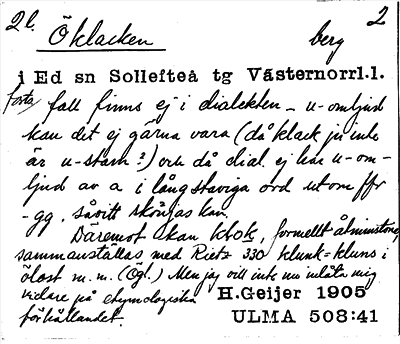 2l. Öklacken berg 2
i Ed sn Sollefteå tg Västernorrl.l.
fall finns ej i dialekten - u-omljud
kan det ej gärna vara (då klack ju inte
är u-stam?) och då dial. ej har u-om-
ljud av a i långstaviga ord utom ffr
-gg, såvitt skönjas kan.
Däremot kan klok, formellt åtminstone,
sammanställas med Rietz 330 klunk = kluns i
ölost m.m. (Ögl.) Men jag vill inte nu inlåta mig
vidare på etymologiska H.Geijer 1905
förhållandet. ULMA 508:41